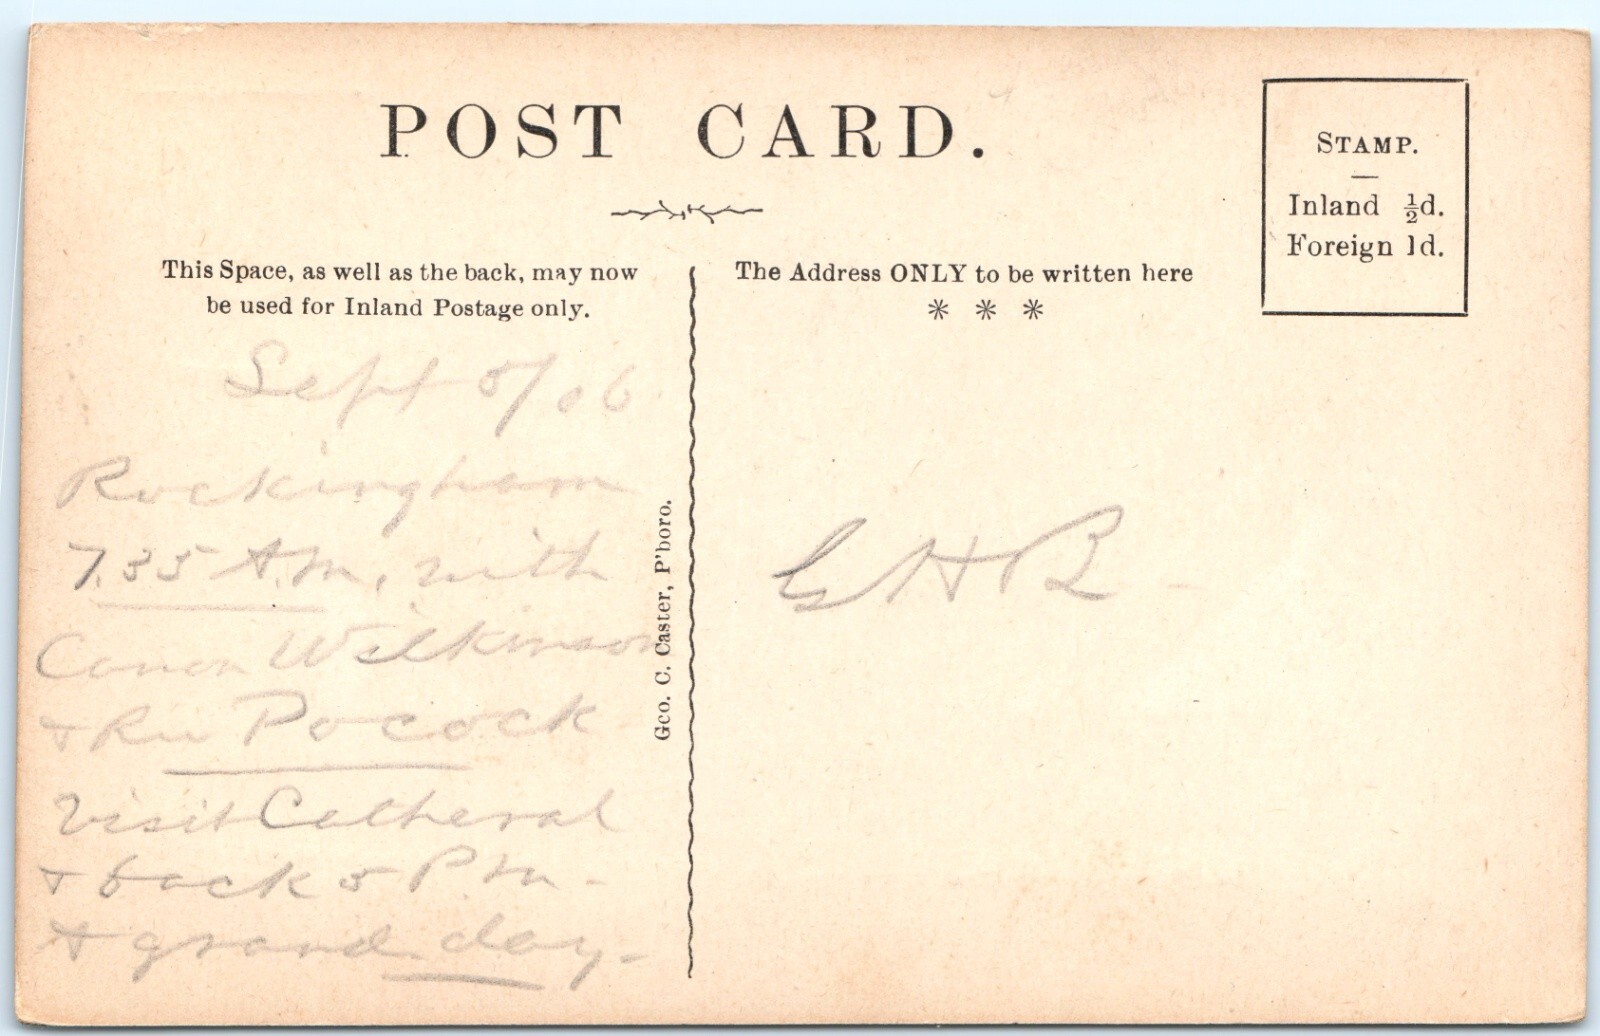 POST CARD.
STAMP.
Inland ½d.
Foreign 1d.
This Space, as well as the back, may now
be used for Inland Postage only.
The Address ONLY to be written here
* * *
Sept 5/06
Rockingham
7.35 A.M, with
Canon Wilkinson
+ Pocock
Visit Catheral
+ back 5 P.M -
A grand day -
Geo. C. Caster, P'boro.
G H B -